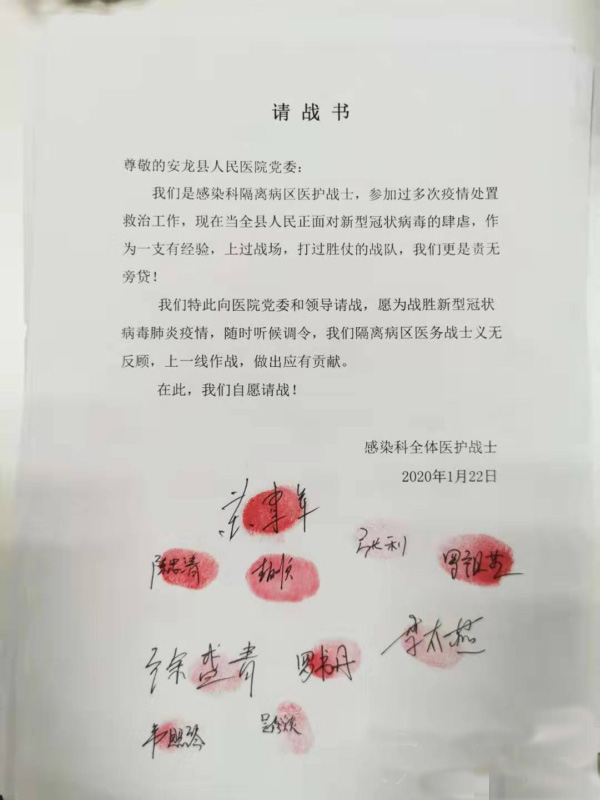 请战书
尊敬的安龙县人民医院党委：
我们是感染科隔离病区医护战士，参加过多次疫情处置
救治工作，现在当全县人民正面对新型冠状病毒的肆虐，作
为一支有经验，上过战场，打过胜仗的战队，我们更是责无
旁贷！
我们特此向医院党委和领导请战，愿为战胜新型冠状
病毒肺炎疫情，随时听候调令，我们隔离病区医务战士义无
反顾，上一线作战，做出应有贡献。
在此，我们自愿请战！
感染科全体医护战士
2020年1月22日
陈忠涛
罗祖芝
罗书丹
李太燕
韦照琴